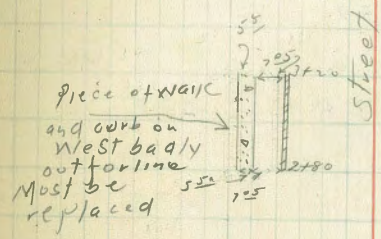 5 51
7 05
3+20
Street
Piece of Walk
and curb on
West badly
out for line
Must be
replaced
5 52
7 05
2+80